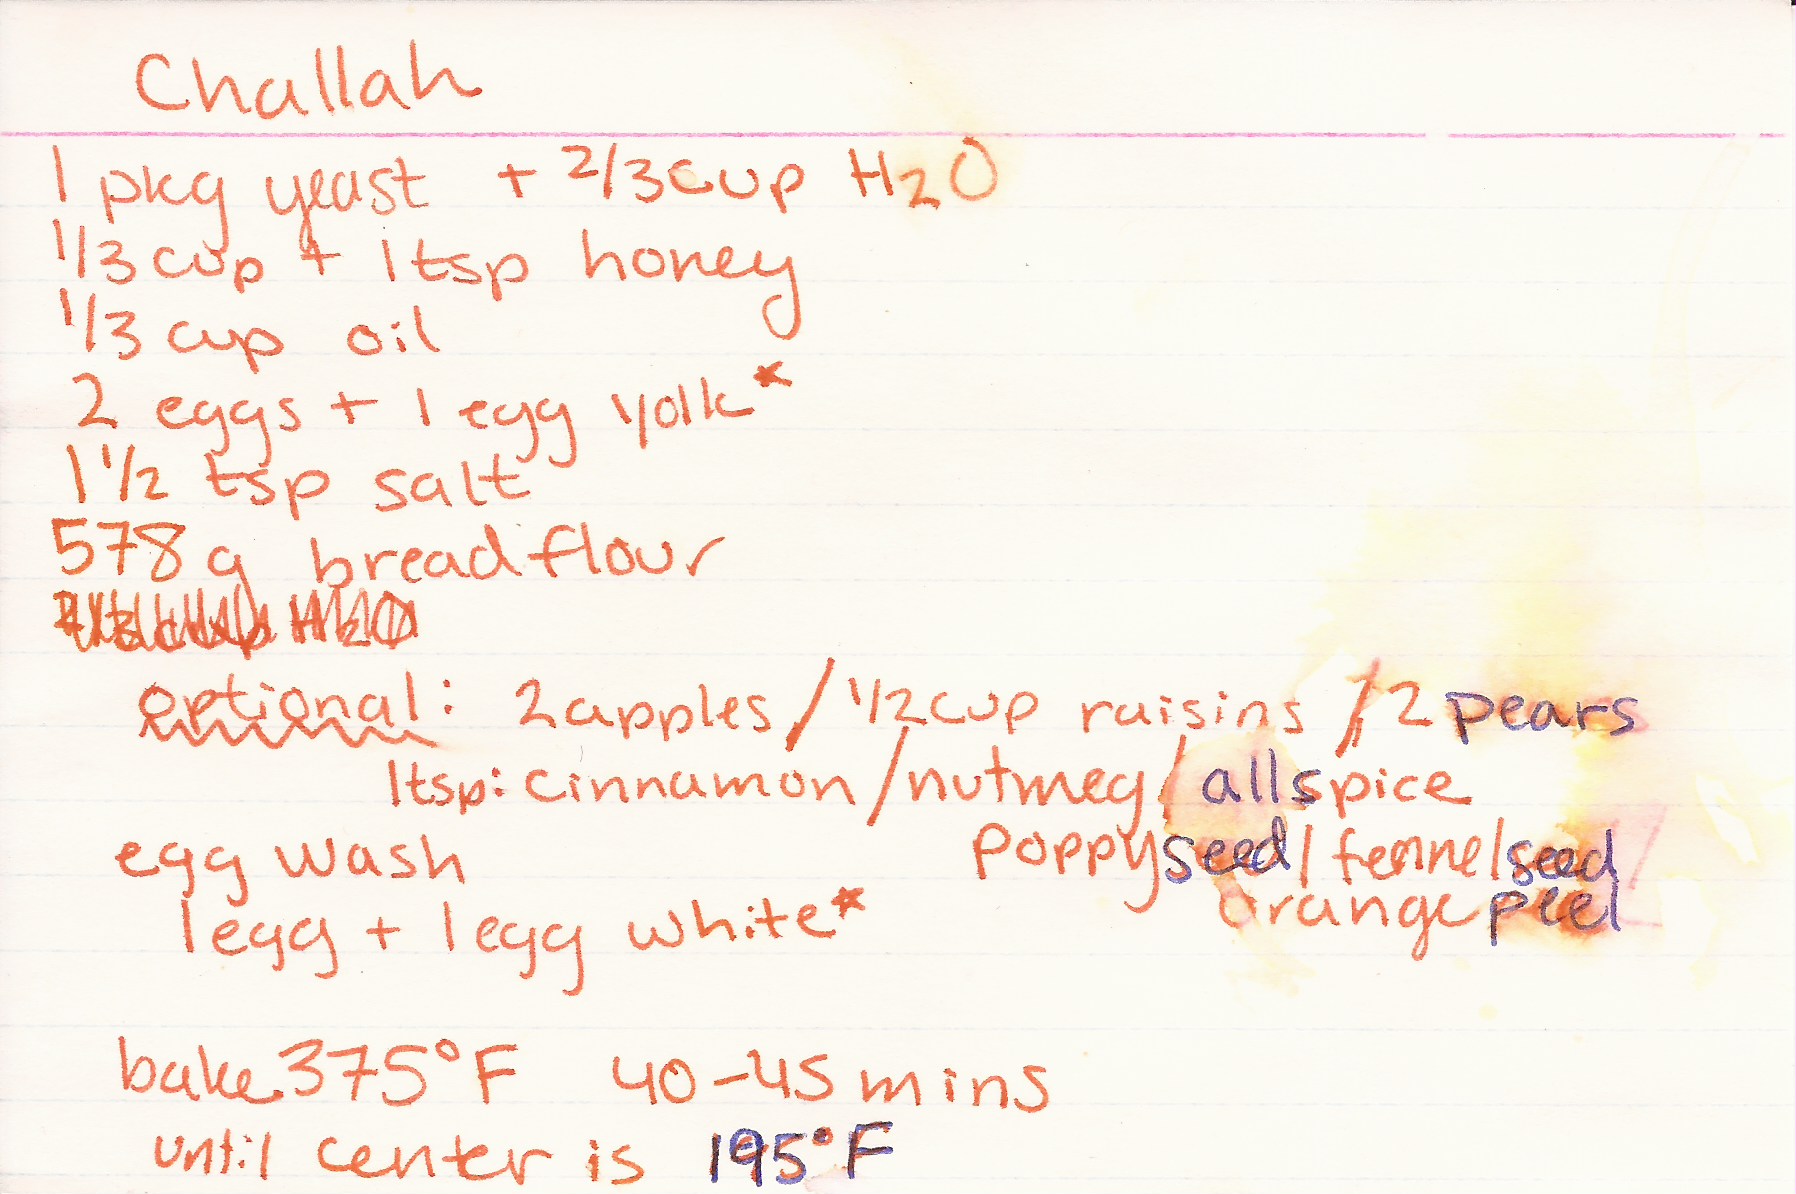 Challah
1 pkg yeast + 2/3 cup H2O
1/3 cup + 1 tsp honey
1/3 cup oil
2 eggs + 1 egg yolk*
1 1/2 tsp salt
578 g bread flour
optional: 2 apples / 1/2 cup raisins / 2 pears
1 tsp: cinnamon / nutmeg / allspice
poppyseed / fennel seed
orange peel
egg wash
1 egg + 1 egg white*
bake 375°F 40-45 mins
until center is 195°F